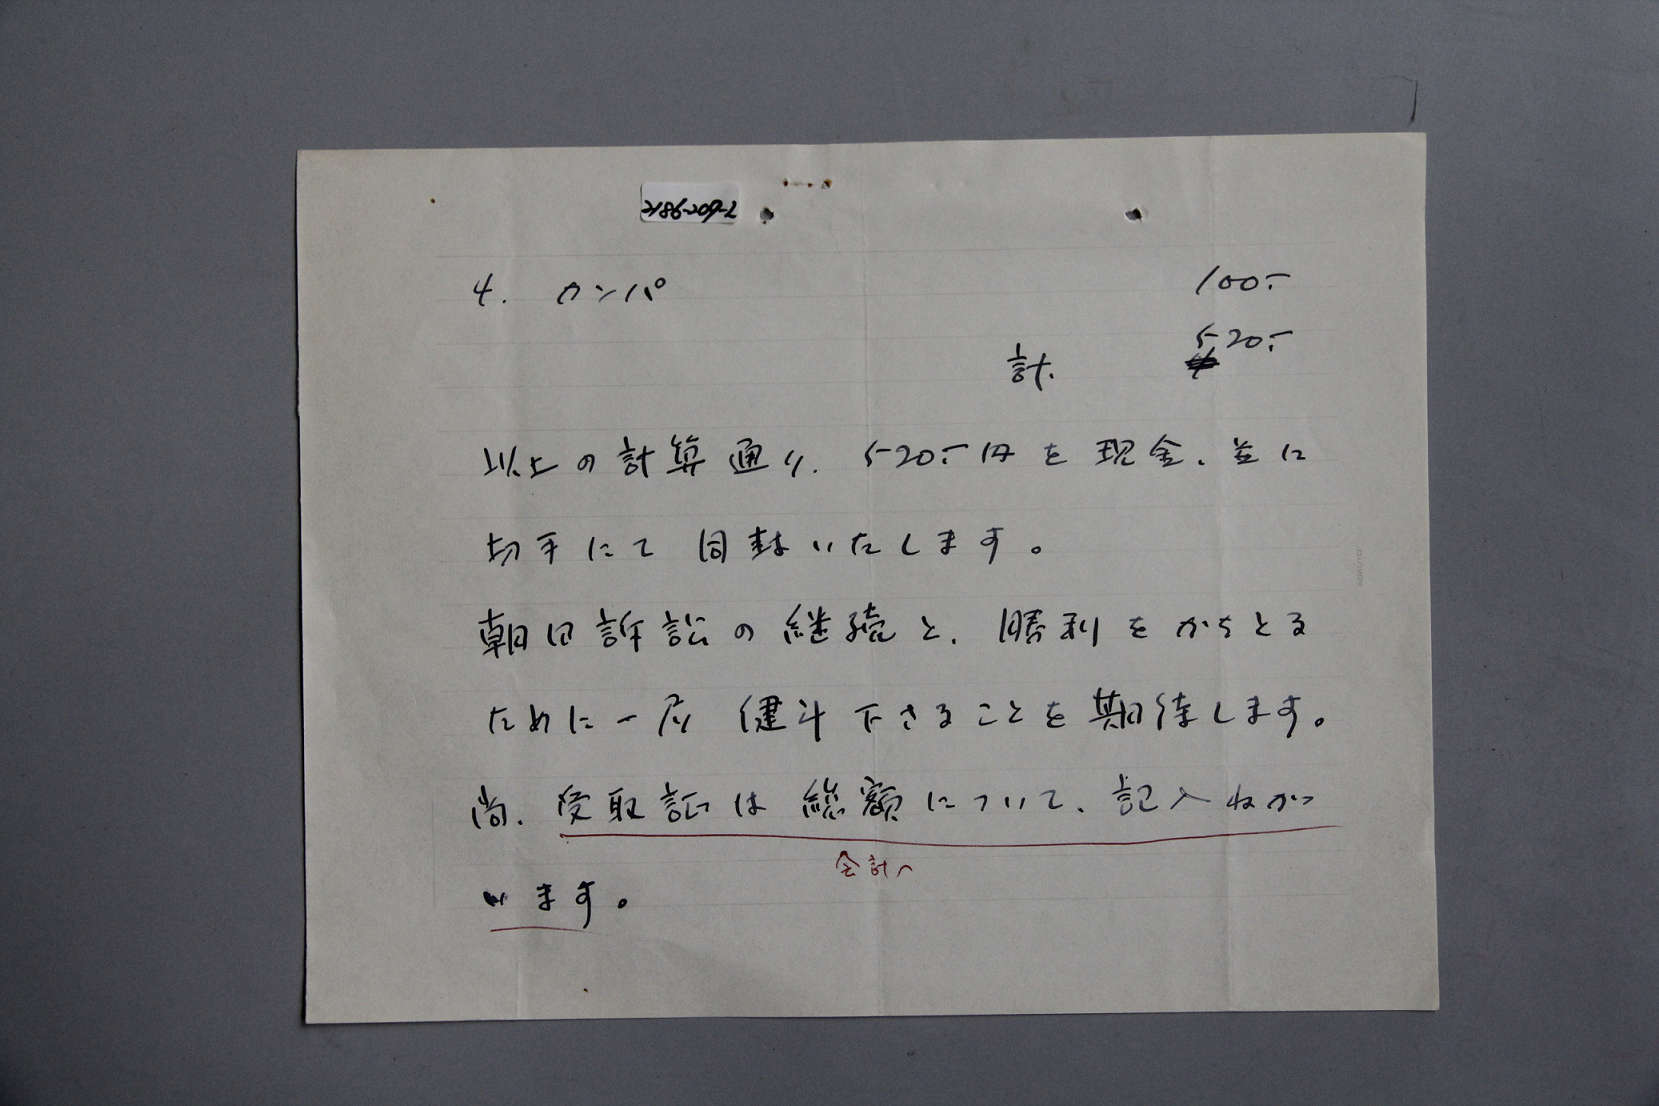 2186-209-2
4. カンパ 100:-
計. 520:-
以上の計算通り. 520:-円を現金、並に
切手にて同封いたします。
朝日訴訟の継続と、勝利をかちとる
ために一层健斗下さることを期待します。
尚、受取証は総額について、記入ねがつ
会計へ
います。